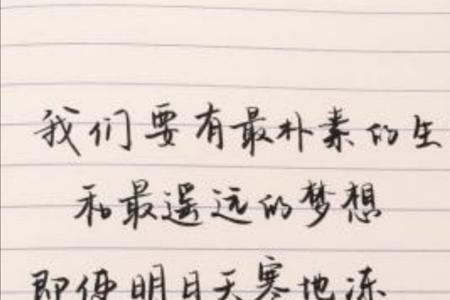 我们要有最朴素的生
和最遥远的梦想
即使明日天寒地冻